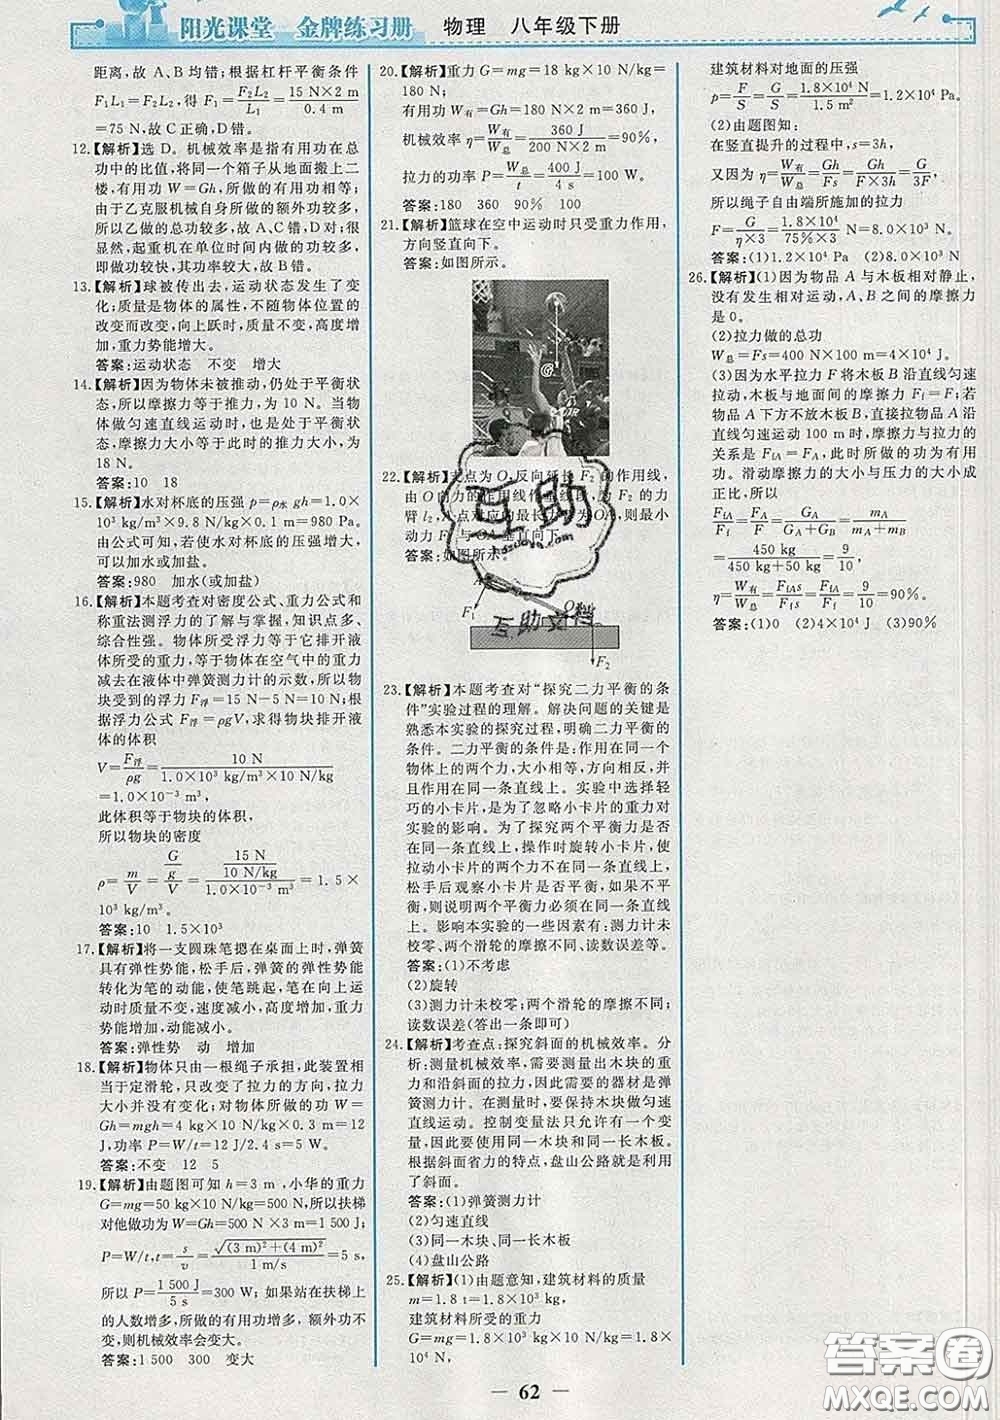 阳光课堂 金牌练习册 物理 八年级下册
距离,故 A、B 均错;根据杠杆平衡条件
F₁L₁=F₂L₂,得 F₁=F₂L₂/L₁=15 N×2 m/0.4 m
=75 N,故 C 正确,D 错。
12.【解析】选 D。机械效率是指有用功在总
功中的比值,将同一个箱子从地面搬上二
楼,有用功 W=Gh,所做的有用功相等;
由于乙克服机械自身所做的额外功较多,
所以乙做的总功较多,故 A、C 错,D 对;很
显然,起重机在单位时间内做的功较多,
即做功较快,其功率较大,故 B 错。
13.【解析】球被传出去,运动状态发生了变
化;质量是物体的属性,不随物体位置的
改变而改变,向上跃时,质量不变,高度增
加,重力势能增大。
答案:运动状态 不变 增大
14.【解析】因为物体未被推动,仍处于平衡状
态,所以摩擦力等于推力,为 10 N。当物
体做匀速直线运动时,也是处于平衡状
态,摩擦力大小等于此时的推力大小,为
18 N。
答案:10 18
15.【解析】水对杯底的压强 p=ρ水 gh=1.0×
10³ kg/m³×9.8 N/kg×0.1 m=980 Pa。
由公式可知,若使水对杯底的压强增大,
可以加水或加盐。
答案:980 加水(或加盐)
16.【解析】本题考查对密度公式、重力公式和
称重法测浮力的了解与掌握,知识点多、
综合性强。物体所受浮力等于它排开液
体所受的重力,等于物体在空气中的重力
减去在液体中弹簧测力计的示数,所以物
块受到的浮力 F浮=15 N-5 N=10 N;
根据浮力公式 F浮=ρgV,求得物块排开
液体的体积
V=F浮/ρg=10 N/(1.0×10³ kg/m³×10 N/kg)
=1.0×10⁻³ m³,
此体积等于物块的体积,
所以物块的密度
ρ=m/V=(G/g)/V=(15 N/10 N/kg)/(1.0×10⁻³ m³)=1.5×
10³ kg/m³。
答案:10 1.5×10³
17.【解析】将一支圆珠笔摁在桌面上时,弹簧
具有弹性势能,松手后,弹簧的弹性势能
转化为笔的动能,使笔跳起,笔在向上运
动时质量不变,速度减小,高度增加,重力
势能增加,动能减小。
答案:弹性势 动 增加
18.【解析】物体只由一根绳子承担,此装置相
当于定滑轮,只改变了拉力的方向,拉力
大小并没有变化;对物体所做的功 W=
Gh=mgh=4 kg×10 N/kg×0.3 m=12
J,功率 P=W/t=12 J/2.4 s=5 W。
答案:不变 12 5
19.【解析】由题图可知 h=3 m,小华的重力
G=mg=50 kg×10 N/kg=500 N,所以扶梯
对他做功为 W=Gh=500 N×3 m=1 500 J;
P=W/t,t=s/v=√((3 m)²+(4 m)²)/1 m/s=5 s,
所以 P=1 500 J/5 s=300 W。如果站在扶梯上
的人数增多,所做的有用功增多,额外功不
变,则机械效率会变大。
答案:1 500 300 变大
20.【解析】重力 G=mg=18 kg×10 N/kg=
180 N;
有用功 W有=Gh=180 N×2 m=360 J,
机械效率 η=W有/W总=360 J/(200 N×2 m)=90%,
拉力的功率 P=W总/t=400 J/4 s=100 W。
答案:180 360 90% 100
21.【解析】篮球在空中运动时只受重力作用,
方向竖直向下。
答案:如图所示。
G
22.【解析】支点为 O,反向延长 F₂ 的作用线,
由 O 向力的作用线作垂线段,为 F₂ 的力
臂 l₂,A 点对应的最长力臂为 OA,则最小
动力 F₁ 与 OA 垂直向下。
答案:如图所示。
A
F₁
O
F₂
23.【解析】本题考查对“探究二力平衡的条
件”实验过程的理解。解决问题的关键是
熟悉本实验的探究过程,明确二力平衡的
条件。二力平衡的条件是:作用在同一个
物体上的两个力,大小相等,方向相反,并
且作用在同一条直线上。实验中选择轻
巧的小卡片,是为了忽略小卡片的重力对
实验的影响。为了探究两个平衡力是否
在同一条直线上,操作时旋转小卡片,使
拉动小卡片的两个力不在同一条直线上,
松手后观察小卡片是否平衡,如果不平
衡,则说明两个平衡力必须在同一条直线
上。影响本实验的一些因素有:测力计未
校零、两个滑轮的摩擦不同、读数误差等。
答案:(1)不考虑
(2)旋转
(3)测力计未校零;两个滑轮的摩擦不同;
读数误差(答出一条即可)
24.【解析】考查点:探究斜面的机械效率。分
析:测量机械效率,需要测量出木块的重
力和沿斜面的拉力,因此需要的器材是弹
簧测力计。在测量时,要保持木块做匀速
直线运动。控制变量法只允许有一个变
量,因此要使用同一木块和同一长木板。
根据斜面省力的特点,盘山公路就是利用
了斜面。
答案:(1)弹簧测力计
(2)匀速直线
(3)同一木块、同一长木板
(4)盘山公路
25.【解析】(1)由题意知,建筑材料的质量
m=1.8 t=1.8×10³ kg,
建筑材料所受的重力
G=mg=1.8×10³ kg×10 N/kg=1.8×
10⁴ N,
建筑材料对地面的压强
p=F/S=G/S=1.8×10⁴ N/1.5 m²=1.2×10⁴ Pa。
(2)由题图知:
在竖直提升的过程中,s=3h,
又因为 η=W有/W总=Gh/Fs=Gh/(F×3h)=G/3F,
所以绳子自由端所施加的拉力
F=G/(η×3)=1.8×10⁴/(75%×3) N=8.0×10³ N。
答案:(1)1.2×10⁴ Pa (2)8.0×10³ N
26.【解析】(1)因为物品 A 与木板相对静止,
没有发生相对运动,A、B 之间的摩擦力
是 0。
(2)拉力做的总功
W总=Fs=400 N×100 m=4×10⁴ J。
(3)因为水平拉力 F 将木板 B 沿直线匀速
拉动,木板与地面间的摩擦力 Ff=F;若
物品 A 下方不放木板,直接拉物品 A 沿
直线匀速运动 100 m 时,摩擦力与拉力的
关系是 FfA=FA,压力的大小与重力的大
小相同。滑动摩擦力的大小与压力的大小成
正比,所以
FfA/Ff=FA/F=GA/(GA+GB)=mA/(mA+mB)
=450 kg/(450 kg+50 kg)=9/10
η=W有/W总=FfAs/Ffs=FfA/Ff=9/10=90%。
答案:(1)0 (2)4×10⁴ J (3)90%
互助
huzuowen.com
互助文档
62
答案圈
MXQE.COM